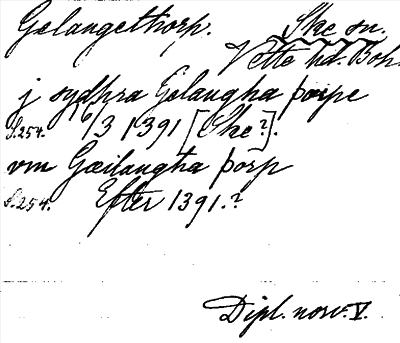 Gelangettorp. Skee sn.
Vette hd. Boh.
j sydhra Gelangha þorpe
S.254. 6/3 1391 [Skee?].
vm Gæilangha þorp
S.254. Efter 1391.?
Dipl. norv. V.